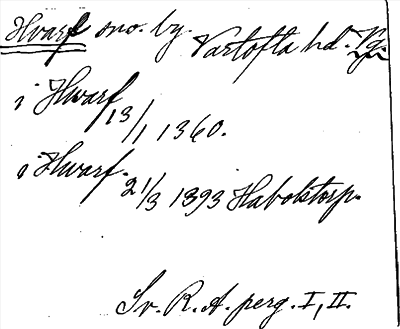 Hvarf sno. by. Vartofta hd. Vg.
i Hwarf 13/1 1360.
i Hwarf. 21/3 1393 Habolstorp.
Sv. R. A. perg. I, II.